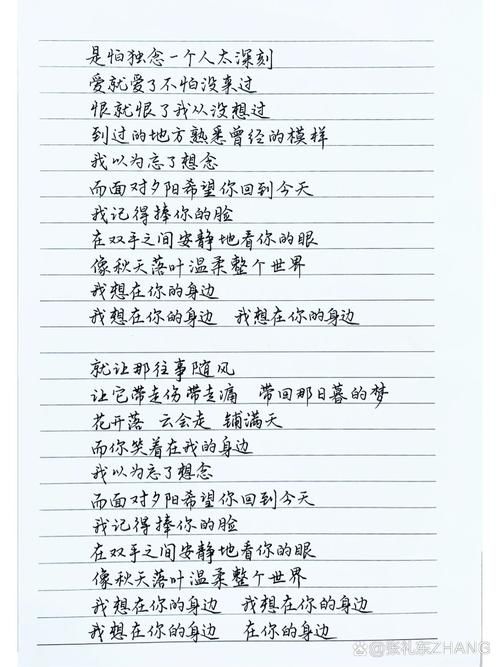 是怕独念一个人太深刻
爱就爱了不怕没来过
恨就恨了我从没想过
到过的地方熟悉曾经的模样
我以为忘了想念
而面对夕阳希望你回到今天
我记得捧你的脸
在双手之间安静地看你的眼
像秋天落叶温柔整个世界
我想在你的身边
我想在你的身边 我想在你的身边
就让那往事随风
让它带走伤带走痛 带回那日暮的梦
花开落 云会走 铺满天
而你笑着在我的身边
我以为忘了想念
而面对夕阳希望你回到今天
我记得捧你的脸
在双手之间安静地看你的眼
像秋天落叶温柔整个世界
我想在你的身边 我想在你的身边
我想在你的身边 在你的身边
@张礼东ZHANG